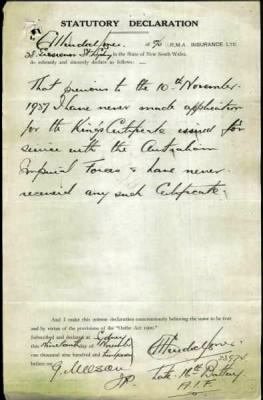 STATUTORY DECLARATION
I, of c/o R.M.A. INSURANCE LTD
38 St Sydney in the State of New South Wales,
do solemnly and sincerely declare as follows:—
That previous to the 10th November
1937 I have never made application
for the King's Certificate issued for
service with the Australian
Imperial Forces & have never
received any such Certificate.
And I make this solemn declaration conscientiously believing the same to be true
and by virtue of the provisions of the "Oaths Act 1900."
Subscribed and declared at Sydney
this Nineteenth day of November
one thousand nine hundred and thirty seven
before me
JP
Late 14th Battery
A.I.F.